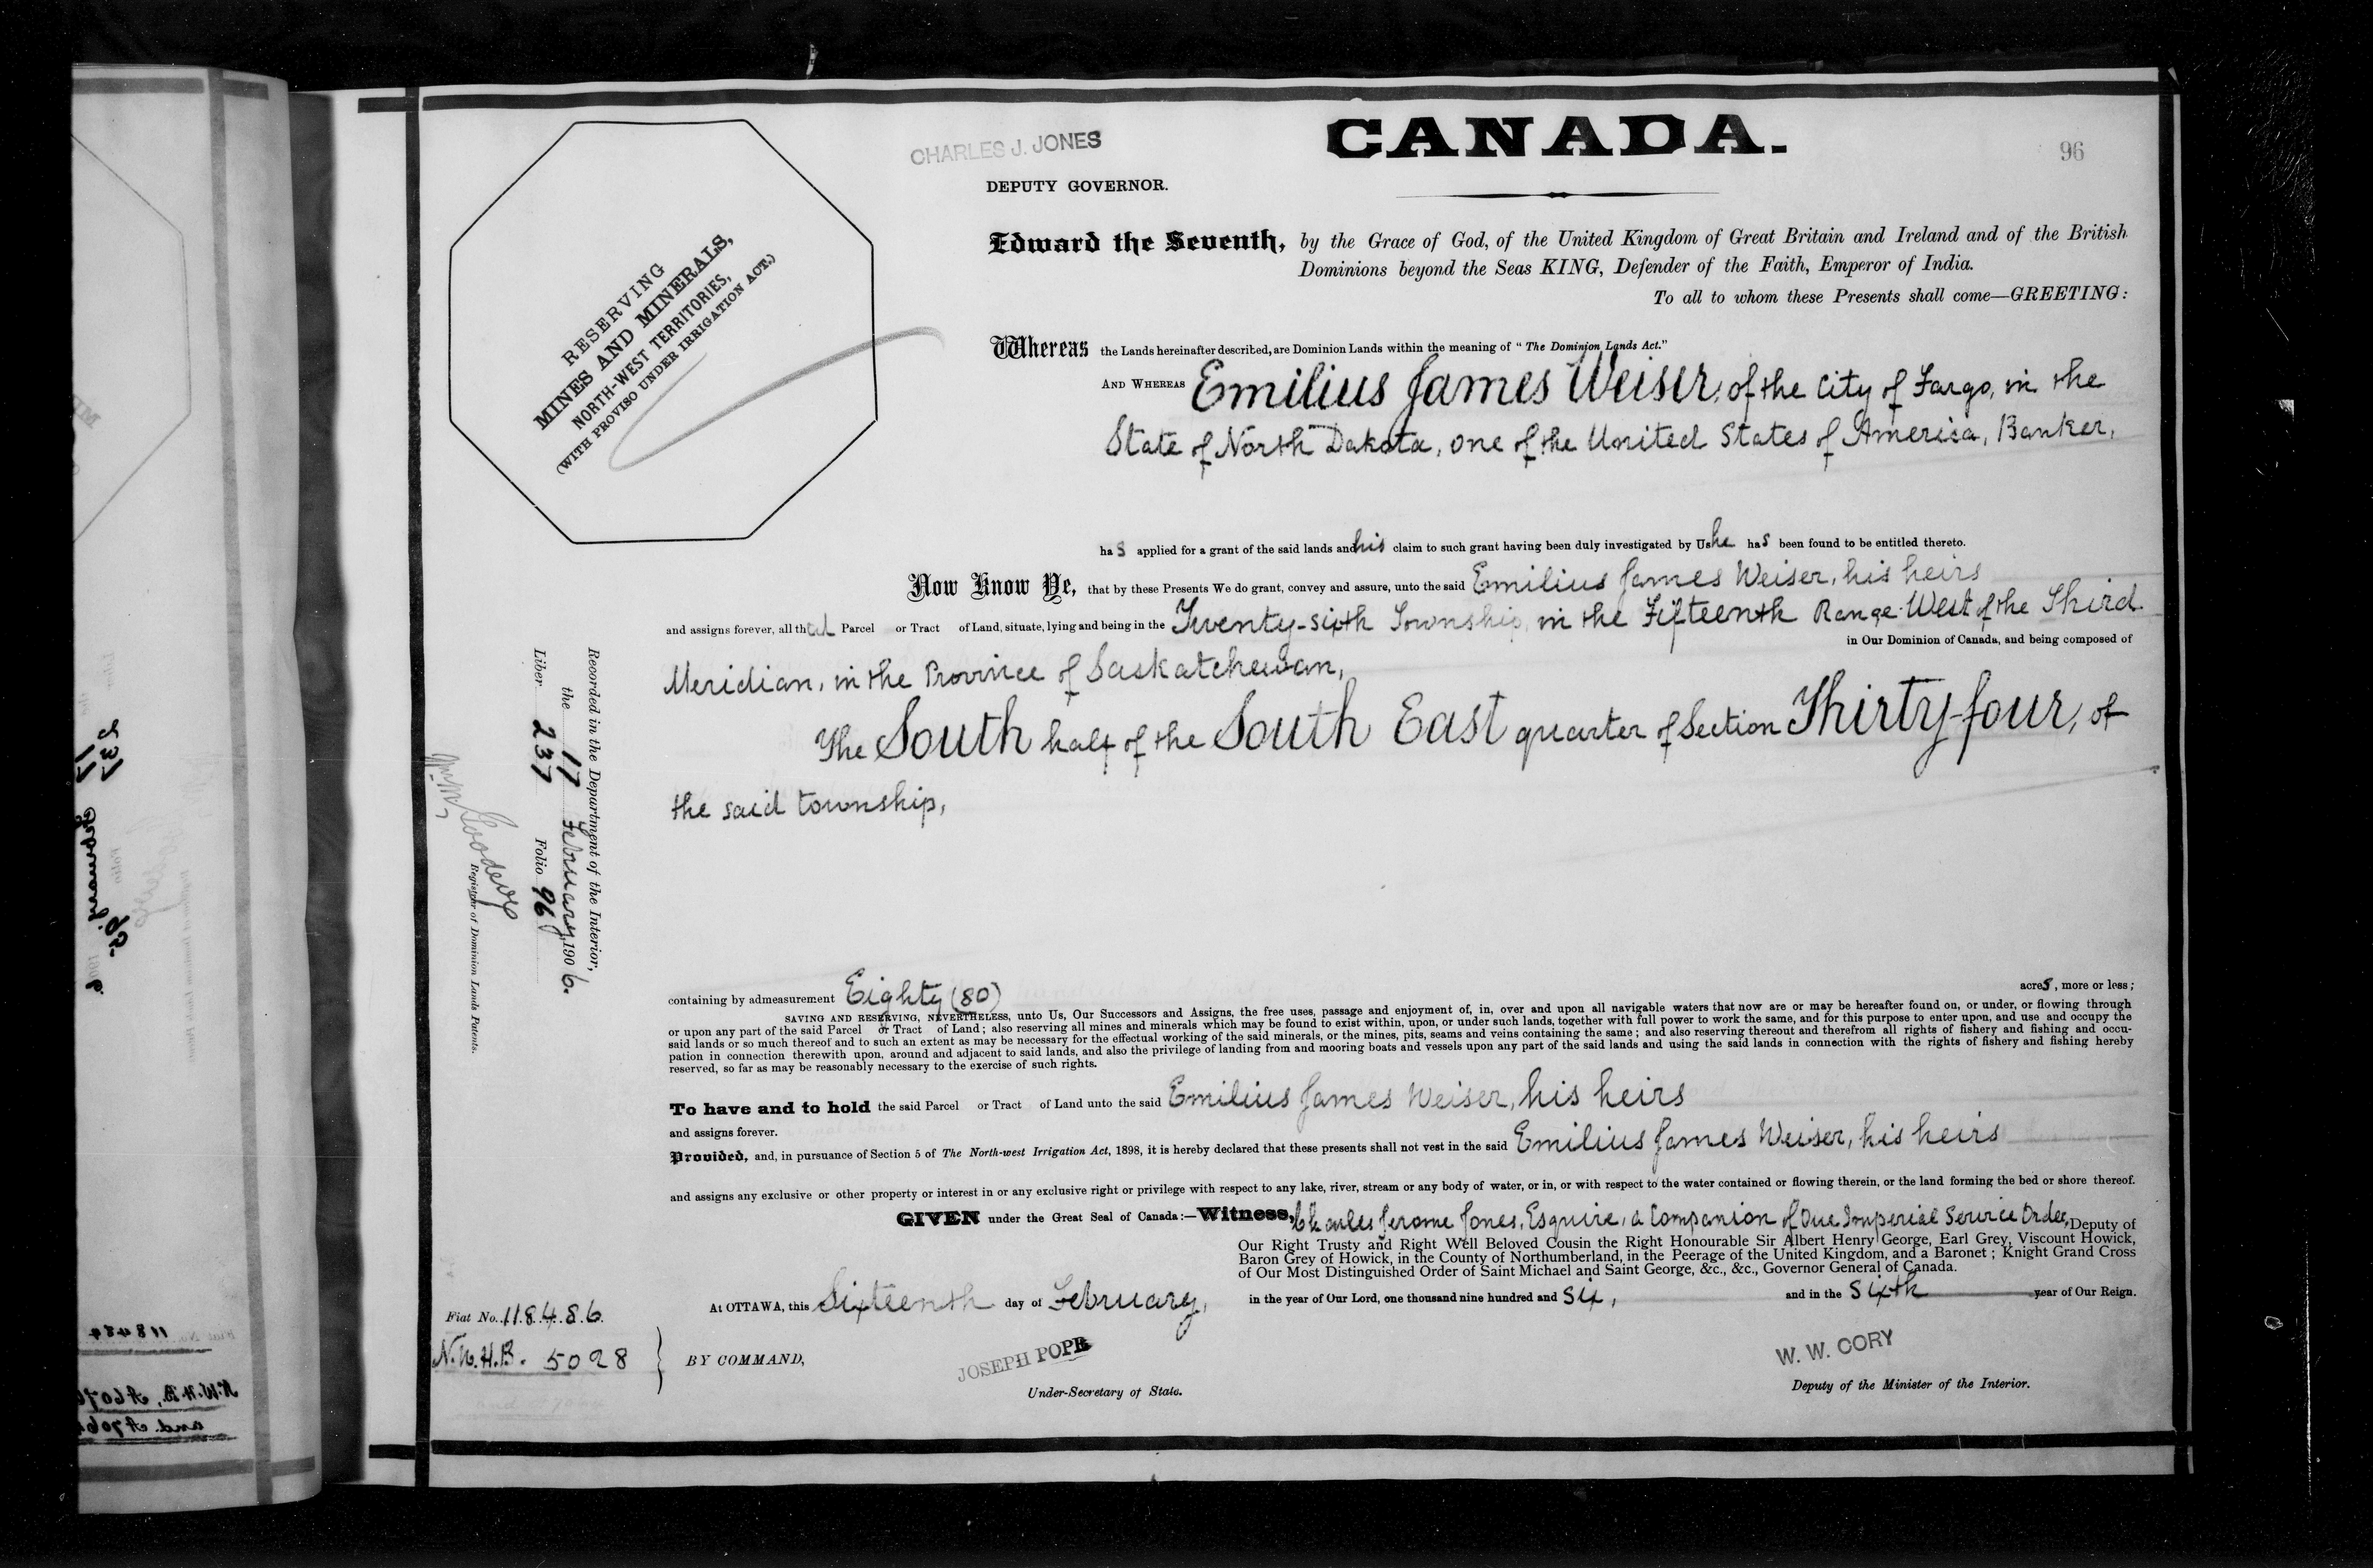 CHARLES J. JONES
DEPUTY GOVERNOR.
CANADA.
96
RESERVING
MINES AND MINERALS,
NORTH-WEST TERRITORIES,
(WITH PROVISO UNDER IRRIGATION ACT.)
Edward the Seventh, by the Grace of God, of the United Kingdom of Great Britain and Ireland and of the British
Dominions beyond the Seas KING, Defender of the Faith, Emperor of India.
To all to whom these Presents shall come—GREETING:
Whereas the Lands hereinafter described, are Dominion Lands within the meaning of "The Dominion Lands Act."
AND WHEREAS Emilius James Weiser, of the City of Fargo, in the
State of North Dakota, one of the United States of America, Banker,
has applied for a grant of the said lands and his claim to such grant having been duly investigated by Us he has been found to be entitled thereto.
Now Know Ye, that by these Presents We do grant, convey and assure, unto the said Emilius James Weiser, his heirs
and assigns forever, all that Parcel or Tract of Land, situate, lying and being in the Twenty-sixth Township, in the Fifteenth Range West of the Third
in Our Dominion of Canada, and being composed of
Meridian, in the Province of Saskatchewan,
The South half of the South East quarter of Section Thirty-four, of
the said township,
Recorded in the Department of the Interior,
the 17 February, 1906.
Liber 237 Folio 96
Registrar of Dominion Lands Patents.
containing by admeasurement Eighty (80) acres, more or less;
SAVING AND RESERVING, NEVERTHELESS, unto Us, Our Successors and Assigns, the free uses, passage and enjoyment of, in, over and upon all navigable waters that now are or may be hereafter found on, or under, or flowing through
or upon any part of the said Parcel or Tract of Land; also reserving all mines and minerals which may be found to exist within, upon, or under such lands, together with full power to work the same, and for this purpose to enter upon, and use and occupy the
said lands or so much thereof and to such an extent as may be necessary for the effectual working of the said minerals, or the mines, pits, seams and veins containing the same; and also reserving thereout and therefrom all rights of fishery and fishing and occu-
pation in connection therewith upon, around and adjacent to said lands, and also the privilege of landing from and mooring boats and vessels upon any part of the said lands and using the said lands in connection with the rights of fishery and fishing hereby
reserved, so far as may be reasonably necessary to the exercise of such rights.
To have and to hold the said Parcel or Tract of Land unto the said Emilius James Weiser, his heirs
and assigns forever.
Provided, and, in pursuance of Section 5 of The North-west Irrigation Act, 1898, it is hereby declared that these presents shall not vest in the said Emilius James Weiser, his heirs
and assigns any exclusive or other property or interest in or any exclusive right or privilege with respect to any lake, river, stream or any body of water, or in, or with respect to the water contained or flowing therein, or the land forming the bed or shore thereof.
GIVEN under the Great Seal of Canada:—Witness, Charles Jerome Jones, Esquire, a Companion of Our Imperial Service Order, Deputy of
Our Right Trusty and Right Well Beloved Cousin the Right Honourable Sir Albert Henry George, Earl Grey, Viscount Howick,
Baron Grey of Howick, in the County of Northumberland, in the Peerage of the United Kingdom, and a Baronet; Knight Grand Cross
of Our Most Distinguished Order of Saint Michael and Saint George, &c., &c., Governor General of Canada.
At OTTAWA, this Sixteenth day of February, in the year of Our Lord, one thousand nine hundred and six, and in the sixth year of Our Reign.
Fiat No. 118486.
N.W.H.B. 5028
BY COMMAND,
JOSEPH POPE
Under-Secretary of State.
W. W. CORY
Deputy of the Minister of the Interior.